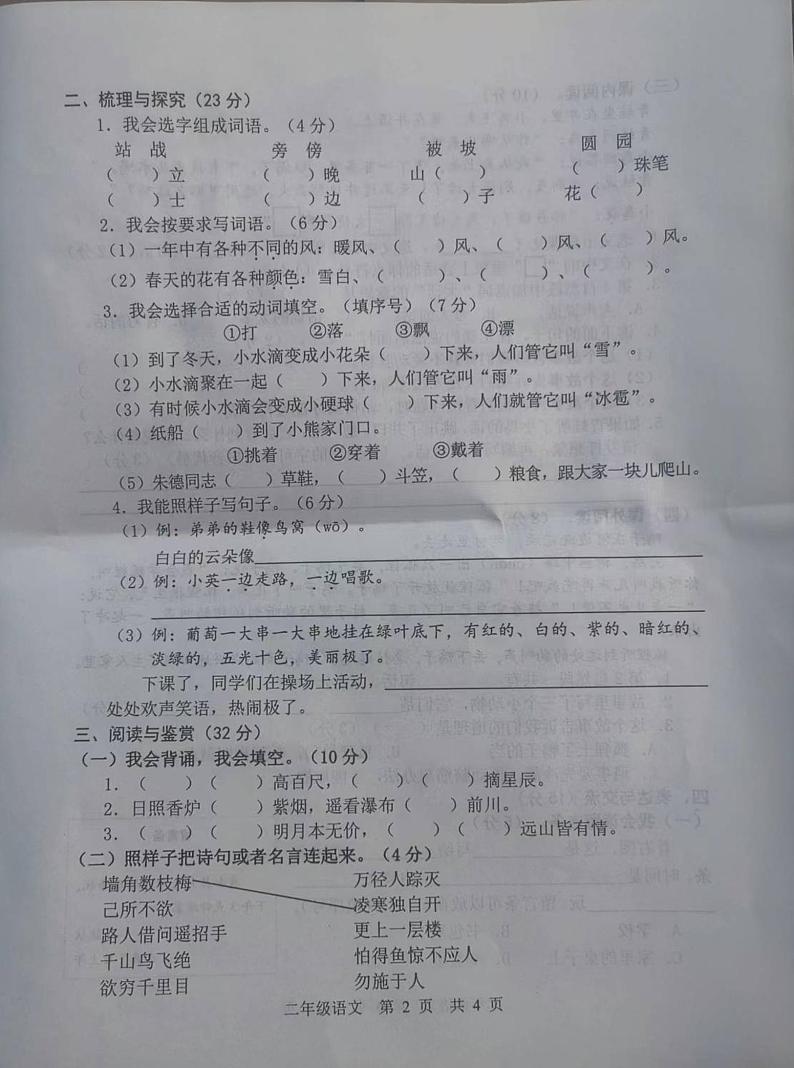 二、梳理与探究（23 分）
1．我会选字组成词语。（4 分）
站 战 旁 傍 被 坡 圆 园
（ ）立 （ ）晚 山（ ） （ ）珠笔
（ ）士 （ ）边 （ ）子 花（ ）
2．我会按要求写词语。（6 分）
（1）一年中有各种不同的风：暖风、（ ）风、（ ）风、（ ）风。
（2）春天的花有各种颜色：雪白、（ ）、（ ）、（ ）。
3．我会选择合适的动词填空。（填序号）（7 分）
①打 ②落 ③飘 ④漂
（1）到了冬天，小水滴变成小花朵（ ）下来，人们管它叫“雪”。
（2）小水滴聚在一起（ ）下来，人们管它叫“雨”。
（3）有时候小水滴会变成小硬球（ ）下来，人们就管它叫“冰雹”。
（4）纸船（ ）到了小熊家门口。
①挑着 ②穿着 ③戴着
（5）朱德同志（ ）草鞋，（ ）斗笠，（ ）粮食，跟大家一块儿爬山。
4．我能照样子写句子。（6 分）
（1）例：弟弟的鞋像鸟窝（wō）。
白白的云朵像
（2）例：小英一边走路，一边唱歌。
（3）例：葡萄一大串一大串地挂在绿叶底下，有红的、白的、紫的、暗红的、
淡绿的，五光十色，美丽极了。
下课了，同学们在操场上活动，
处处欢声笑语，热闹极了。
三、阅读与鉴赏（32 分）
（一）我会背诵，我会填空。（10 分）
1．（ ）（ ）高百尺，（ ）（ ）摘星辰。
2．日照香炉（ ）紫烟，遥看瀑布（ ）前川。
3．（ ）（ ）明月本无价，（ ）（ ）远山皆有情。
（二）照样子把诗句或者名言连起来。（4 分）
墙角数枝梅 万径人踪灭
己所不欲 凌寒独自开
路人借问遥招手 更上一层楼
千山鸟飞绝 怕得鱼惊不应人
欲穷千里目 勿施于人
二年级语文 第 2 页 共 4 页